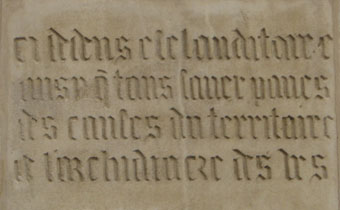 ci dedens est lauditoire
ans p̃ q̃ tous saver paves
des causes du territoire
de larchidiacre des des